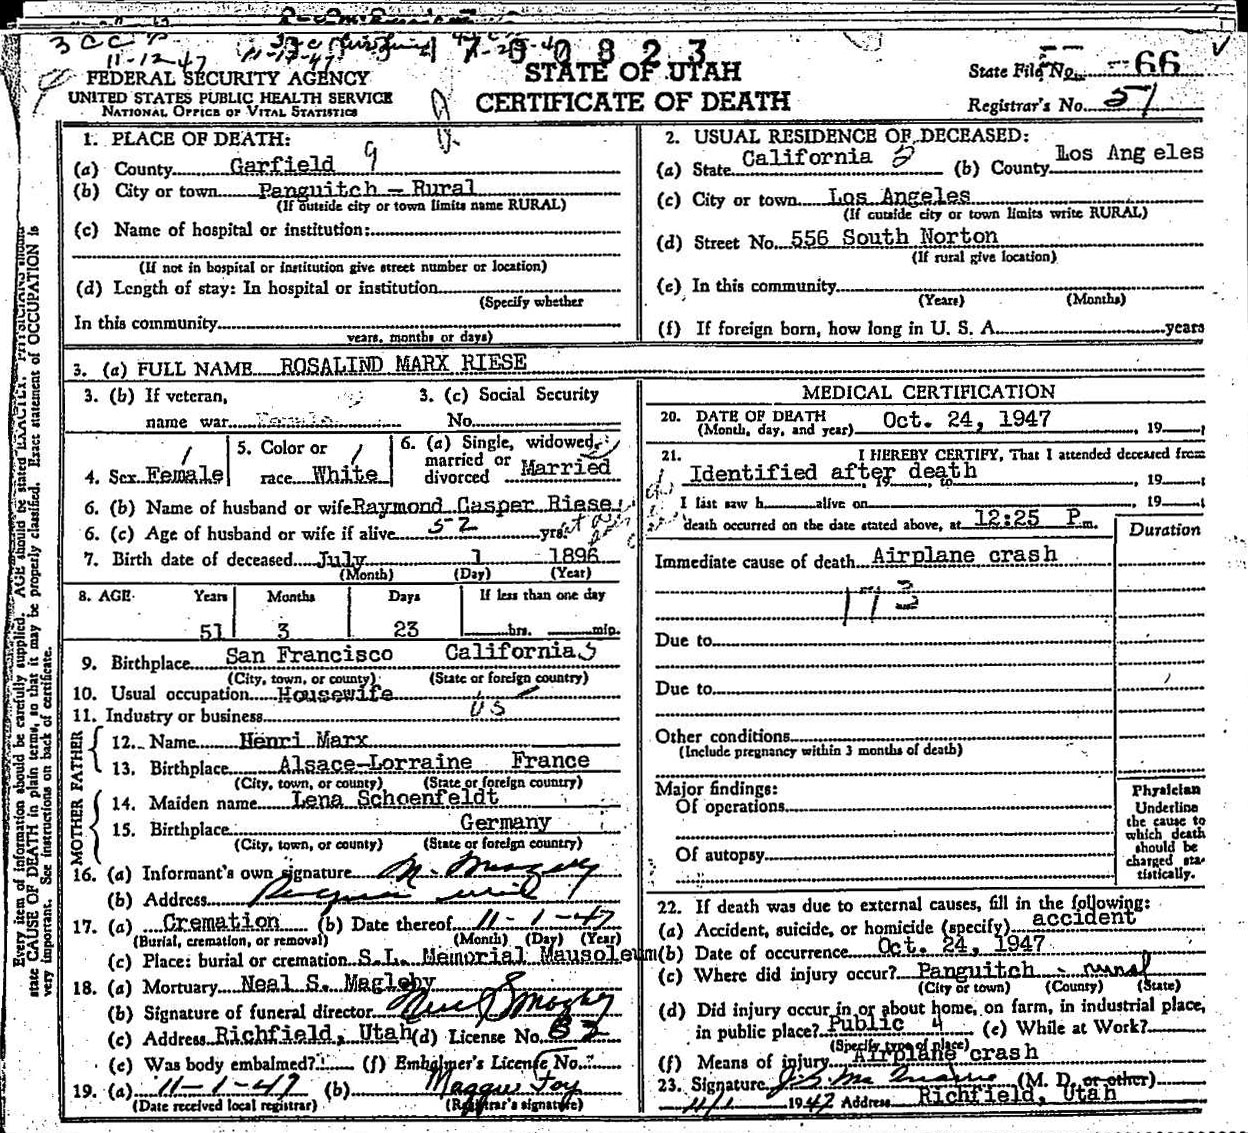 3 C C
11-12-47
11-17-47
7 0 0 8 2 3
FEDERAL SECURITY AGENCY
UNITED STATES PUBLIC HEALTH SERVICE
NATIONAL OFFICE OF VITAL STATISTICS
STATE OF UTAH
CERTIFICATE OF DEATH
State File No. 66
Registrar's No. 51
1. PLACE OF DEATH:
(a) County Garfield 9
(b) City or town Panguitch - Rural
(If outside city or town limits name RURAL)
(c) Name of hospital or institution:
(If not in hospital or institution give street number or location)
(d) Length of stay: In hospital or institution
(Specify whether
In this community
years, months or days)
2. USUAL RESIDENCE OF DECEASED:
(a) State California (b) County Los Angeles
(c) City or town Los Angeles
(If outside city or town limits write RURAL)
(d) Street No. 556 South Norton
(If rural give location)
(e) In this community
(Years) (Months)
(f) If foreign born, how long in U. S. A. years
3. (a) FULL NAME ROSALIND MARX RIESE
3. (b) If veteran, 3. (c) Social Security
name war No.
4. Sex Female 5. Color or race White 6. (a) Single, widowed, married or divorced Married
6. (b) Name of husband or wife Raymond Casper Riese
6. (c) Age of husband or wife if alive 52 yrs.
7. Birth date of deceased July 1 1896
(Month) (Day) (Year)
8. AGE Years Months Days If less than one day
51 3 23 hrs. min.
9. Birthplace San Francisco California
(City, town, or county) (State or foreign country)
10. Usual occupation Housewife
11. Industry or business US
FATHER
12. Name Henri Marx
13. Birthplace Alsace-Lorraine France
(City, town, or county) (State or foreign country)
MOTHER
14. Maiden name Lena Schoenfeldt
15. Birthplace Germany
(City, town, or county) (State or foreign country)
16. (a) Informant's own signature
(b) Address
17. (a) Cremation (b) Date thereof 11-1-47
(Burial, cremation, or removal) (Month) (Day) (Year)
(c) Place: burial or cremation S.L. Memorial Mausoleum
18. (a) Mortuary Neal S. Magleby
(b) Signature of funeral director Neal S Magleby
(c) Address Richfield, Utah (d) License No. 82
(e) Was body embalmed? (f) Embalmer's License No.
19. (a) 11-1-47 (b) Maggie Foy
(Date received local registrar) (Registrar's signature)
MEDICAL CERTIFICATION
20. DATE OF DEATH
(Month, day, and year) Oct. 24, 1947 , 19
21. I HEREBY CERTIFY, That I attended deceased from
Identified after death , 19 , to , 19
I last saw h alive on 19
death occurred on the date stated above, at 12:25 P.m.
Duration
Immediate cause of death Airplane crash
173
Due to
Due to
Other conditions
(Include pregnancy within 3 months of death)
Major findings:
Of operations
Of autopsy
Physician
Underline
the cause to
which death
should be
charged sta-
tistically.
22. If death was due to external causes, fill in the following:
(a) Accident, suicide, or homicide (specify) accident
(b) Date of occurrence Oct. 24, 1947
(c) Where did injury occur? Panguitch - rural
(City or town) (County) (State)
(d) Did injury occur in or about home, on farm, in industrial place,
in public place? Public 4 (e) While at Work?
(Specify type of place)
(f) Means of injury Airplane crash
23. Signature (M. D. or other)
11/1 1947 Address Richfield, Utah
Every item of information should be carefully supplied. AGE should be stated EXACTLY. PHYSICIANS should
state CAUSE OF DEATH in plain terms, so that it may be properly classified. Exact statement of OCCUPATION is
very important. See instructions on back of certificate.